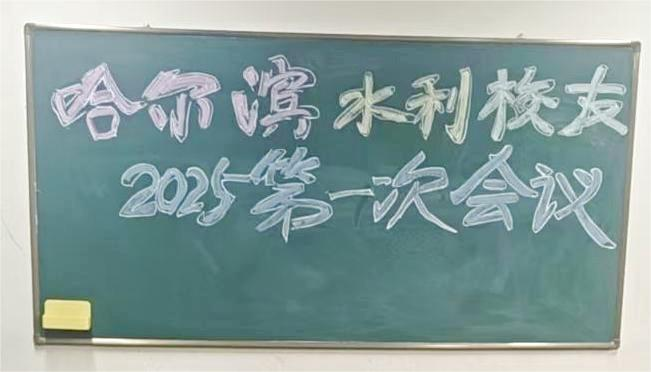 哈尔滨水利校友
2025第一次会议